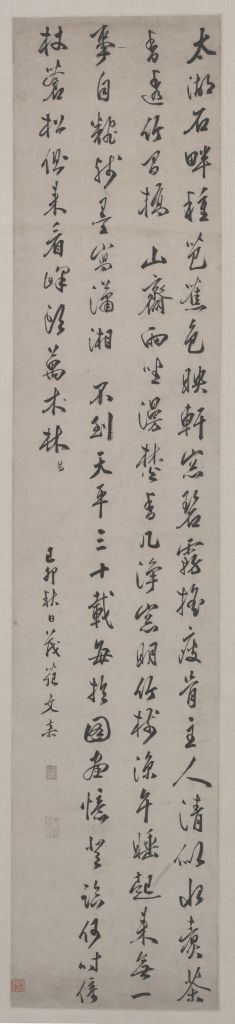 太湖石畔種芭蕉色映軒窓碧霧搖瘦骨主人清似水煮茶
香透竹間橋　山齋雨坐漫焚香几淨窓明竹樹涼午睡起來無一
事自試輕墨寫瀟湘　不到天平三十載每於圖畫憶登臨何時倚
杖蒼松側來看峰頭萬木林
己卯秋日茂苑文嘉